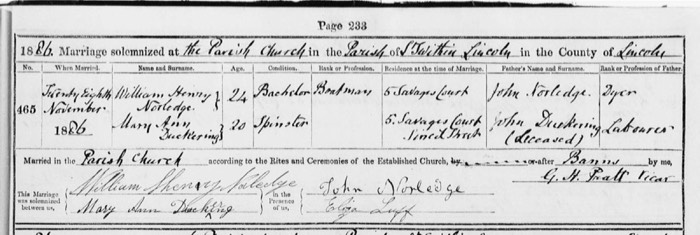 Page 233
1886. Marriage solemnized at the Parish Church in the Parish of St Swithin Lincoln in the County of Lincoln
No. When Married. Name and Surname. Age. Condition. Rank or Profession. Residence at the time of Marriage. Father's Name and Surname. Rank or Profession of Father.
465 Twenty Eighth November 1886 William Henry Norledge 24 Bachelor Boatman 5 Savages Court John Norledge. Dyer
Mary Ann Duckering 20 Spinster 5 Savages Court John Duckering (deceased) Labourer
Married in the Parish Church according to the Rites and Ceremonies of the Established Church, by or after Banns by me,
G. H. Pratt Vicar
This Marriage was solemnized between us, William Henry Norledge in the Presence of us, John Norledge
Mary Ann Duckring Eliza Luff